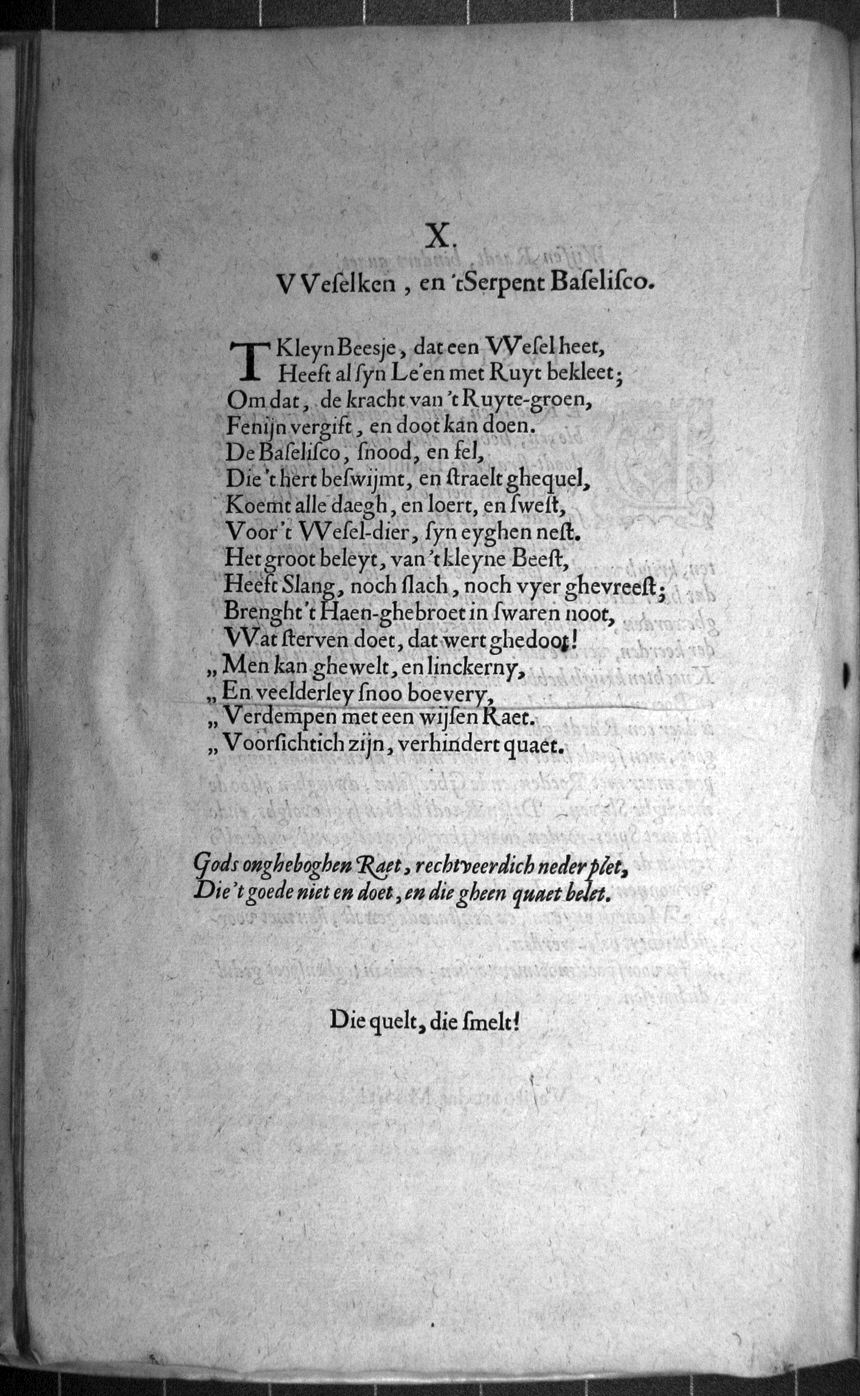 X.
VVeſelken, en 'tSerpent Baſeliſco.
T Kleyn Beesje, dat een VVeſel heet,
Heeft al ſyn Le'en met Ruyt bekleet;
Om dat, de kracht van 't Ruyte-groen,
Fenijn vergift, en doot kan doen.
De Baſeliſco, ſnood, en fel,
Die 't hert beſwijmt, en ſtraelt ghequel,
Koemt alle daegh, en loert, en ſweſt,
Voor 't VVeſel-dier, ſyn eyghen neſt.
Het groot beleyt, van 't kleyne Beeſt,
Heeft Slang, noch ſlach, noch vyer ghevreeſt;
Brenght 't Haen-ghebroet in ſwaren noot,
VVat ſterven doet, dat wert ghedoot!
„ Men kan ghewelt, en linckerny,
„ En veelderley ſnoo boevery,
„ Verdempen met een wijſen Raet.
„ Voorſichtich zijn, verhindert quaet.
Gods ongheboghen Raet, rechtveerdich neder plet,
Die 't goede niet en doet, en die gheen quaet belet.
Die quelt, die ſmelt!